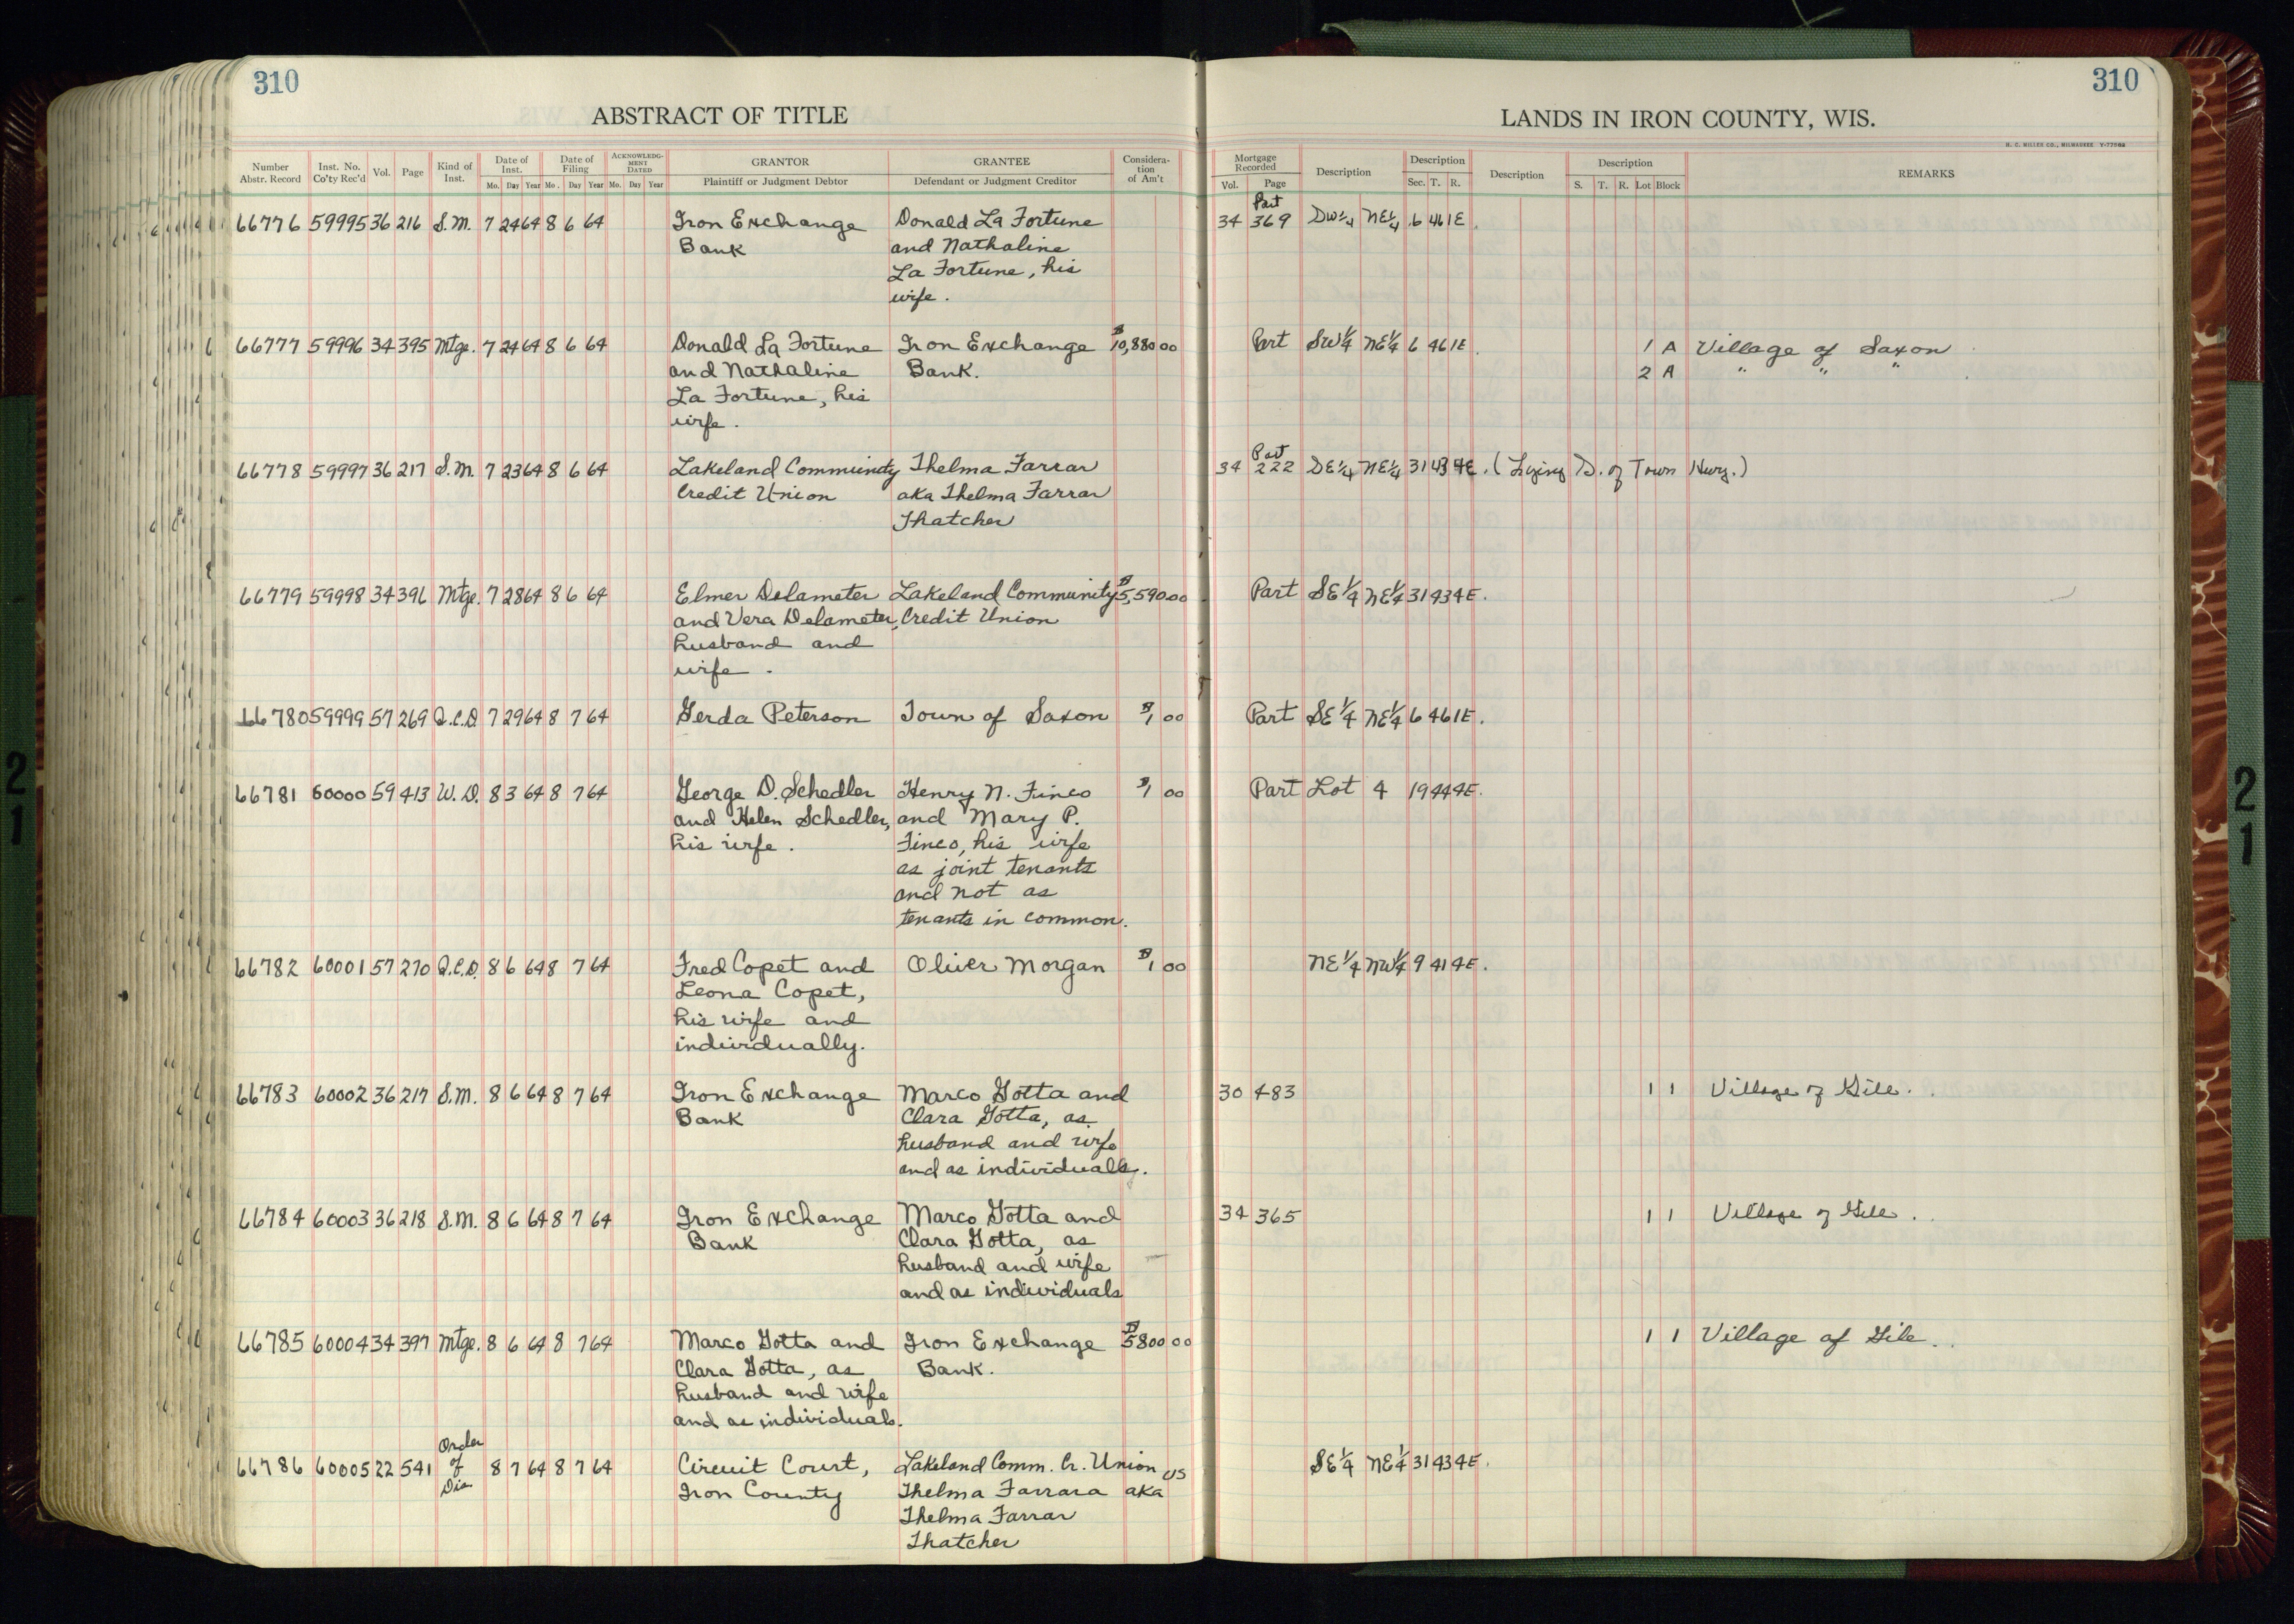 310
310
ABSTRACT OF TITLE
LANDS IN IRON COUNTY, WIS.
H. C. MILLER CO., MILWAUKEE Y-77068
Number Abstr. Record Inst. No. Co'ty Rec'd Vol. Page Kind of Inst. Date of Inst. Mo. Day Year Date of Filing Mo. Day Year ACKNOWLEDGMENT DATED Mo. Day Year GRANTOR Plaintiff or Judgment Debtor GRANTEE Defendant or Judgment Creditor Consideration of Am't
Mortgage Recorded Vol. Page Description Description Sec. T. R. Description Description S. T. R. Lot Block REMARKS
66776 59995 36 216 S.M. 7 24 64 8 6 64 Iron Exchange Donald La Fortune 34 Part 369 SW¼ NE¼ 6 46 1E.
Bank and Nathaline
La Fortune, his
wife.
66777 59996 34 395 Mtge. 7 24 64 8 6 64 Donald La Fortune Iron Exchange $10,880 00 Part SW¼ NE¼ 6 46 1E. 1 A Village of Saxon
and Nathaline Bank. 2 A " " "
La Fortune, his
wife.
66778 59997 36 217 S.M. 7 23 64 8 6 64 Lakeland Community Thelma Farrar 34 Part 222 SE¼ NE¼ 31 43 4E. (Lying S. of Town Hwy.)
Credit Union aka Thelma Farrar
Thatcher
66779 59998 34 396 Mtge. 7 28 64 8 6 64 Elmer Delameter Lakeland Community $5,590 00 Part SE¼ NE¼ 31 43 4E.
and Vera Delameter, Credit Union
husband and
wife.
66780 59999 57 269 Q.C.D 7 29 64 8 7 64 Gerda Peterson Town of Saxon $1 00 Part SE¼ NE¼ 6 46 1E.
66781 60000 59 413 W.D. 8 3 64 8 7 64 George D. Schedler Henry N. Fineo $1 00 Part Lot 4 19 44 4E.
and Helen Schedler, and Mary P.
his wife. Fineo, his wife
as joint tenants
and not as
tenants in common.
66782 60001 57 270 Q.C.D. 8 6 64 8 7 64 Fred Copet and Oliver Morgan $1 00 NE¼ NW¼ 9 41 4E.
Leona Copet,
his wife and
individually.
66783 60002 36 217 S.M. 8 6 64 8 7 64 Iron Exchange Marco Gotta and 30 483 1 1 Village of Gile.
Bank Clara Gotta, as
husband and wife
and as individuals.
66784 60003 36 218 S.M. 8 6 64 8 7 64 Iron Exchange Marco Gotta and 34 365 1 1 Village of Gile.
Bank Clara Gotta, as
husband and wife
and as individuals
66785 60004 34 397 Mtge. 8 6 64 8 7 64 Marco Gotta and Iron Exchange $5800 00 1 1 Village of Gile.
Clara Gotta, as Bank.
husband and wife
and as individuals.
66786 60005 22 541 Order of Dis 8 7 64 8 7 64 Circuit Court, Lakeland Comm. Cr. Union vs SE¼ NE¼ 31 43 4E.
Iron County Thelma Farrara aka
Thelma Farrar
Thatcher
21
21